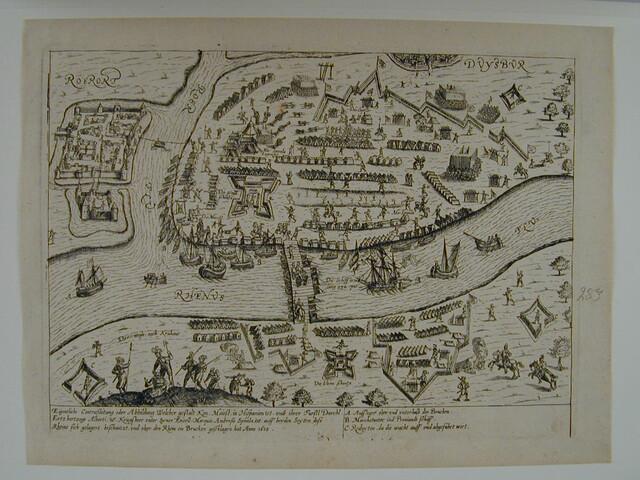 ROERORT
DUYSBUR
ROER
FLV:
RHENVS
FLV:
Die kleine Schantz
Eigentliche Contrafeitung oder Abbildung Welcher gestalt Kön. Maiest. in Hispanien etc. undt ihrer Fürstl Durchl
Ertz hertzogs Alberti etc. Kriegsheer unter Marquis Ambrosio Spinola etc. auff beiden seyten dess
Rheins sich gelagert, beschantzet, und uber den Rhein ein Brucken geschlagen hat Anno 1605.
A. Ausleger ober und unterhalb der Brucken.
B. Marcketenter und Proviandt schiff.
C. Redouten da die wacht auff und abgeführt wirt.
253